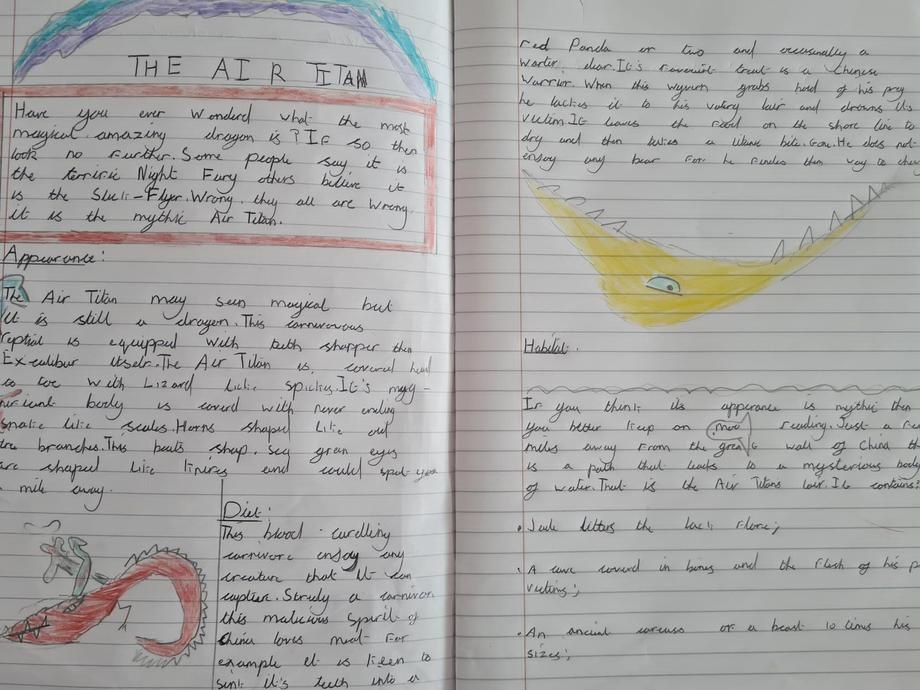 THE AIR TITAN
Have you ever wonderd what the most
magical amazing dragon is? If so then
look no further. Some people say it is
the terrific Night Fury others believe it
is the Flyer. Wrong, they all are wrong
it is the mythic Air Titan.
Appearance:
The Air Titan may seen magical but
it is still a dragon. This carnivorous
reptial is equipped with teeth sharper then
Excalibur itself. The Air Titan is covered head
to toe with Lizard like spickes. It's magg-
nificient body is coverd with never ending
snake like scales. Horns shaped like old
tre branches. This shap, gren eyes
are shaped like and could spot you
a mile away.
Diet:
This blood-curdling
carnivore enjoy any
creature that it can
capture. a carnivore
this malicious spirit of
China loves meat. For
example it is keen to
sink it's teeth into a
red Panda or two and occasionally a
water dear. It's favourit treat is a Chinese
Warrior. When this wyvern grabs hold of his prey
he tackes it to his watery lair and drowns its
victim. It leaves the food on the shore line to
dry and then takes a bite. He does not
enjoy any bear for he findes them vary to
Habitat.
If you think its apperance is mythic then
you better keep on reading. Just a few
miles away from the great wall of China
is a path that leads to a mysterious body
of water. That is the Air Titans lair. It contains:
• Jade litters the lack flore;
• A cave coverd in bones and the flesh of his
victims;
• An ancient carcuss of a beast 10 times his
sizes;